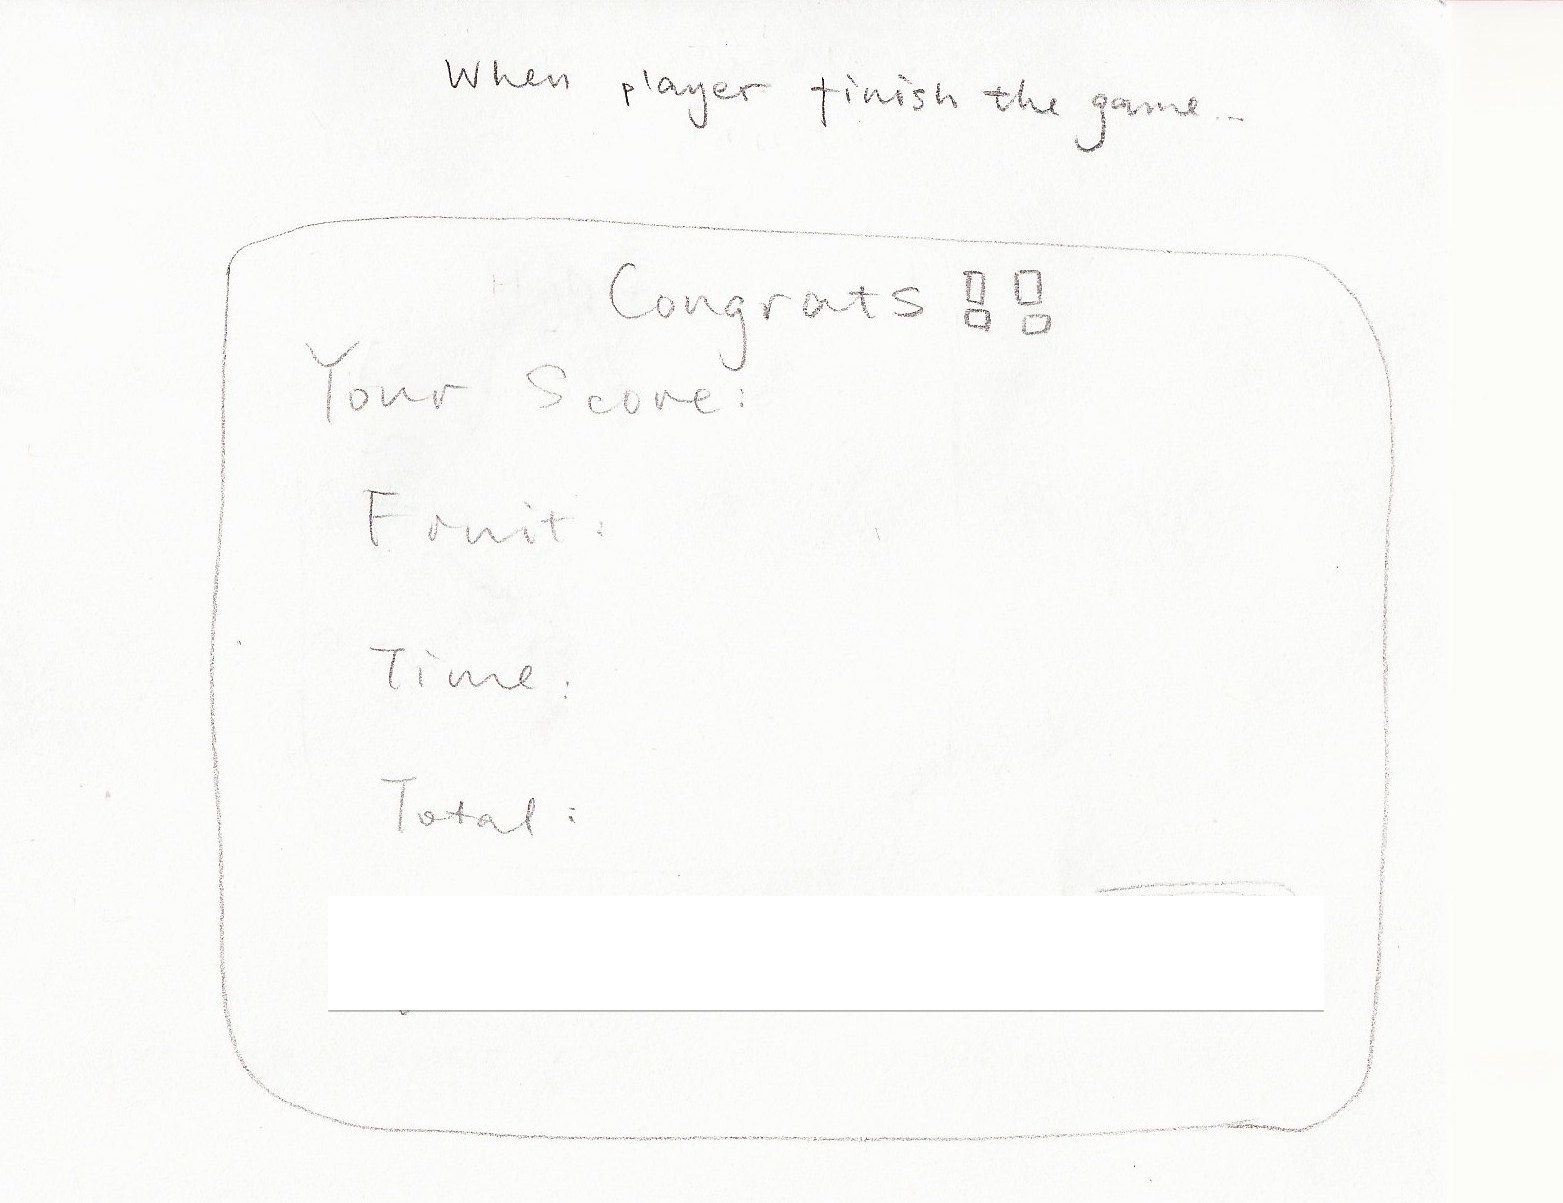 When player finish the game...
Congrats !!
Your Score:
Fruit:
Time:
Total: